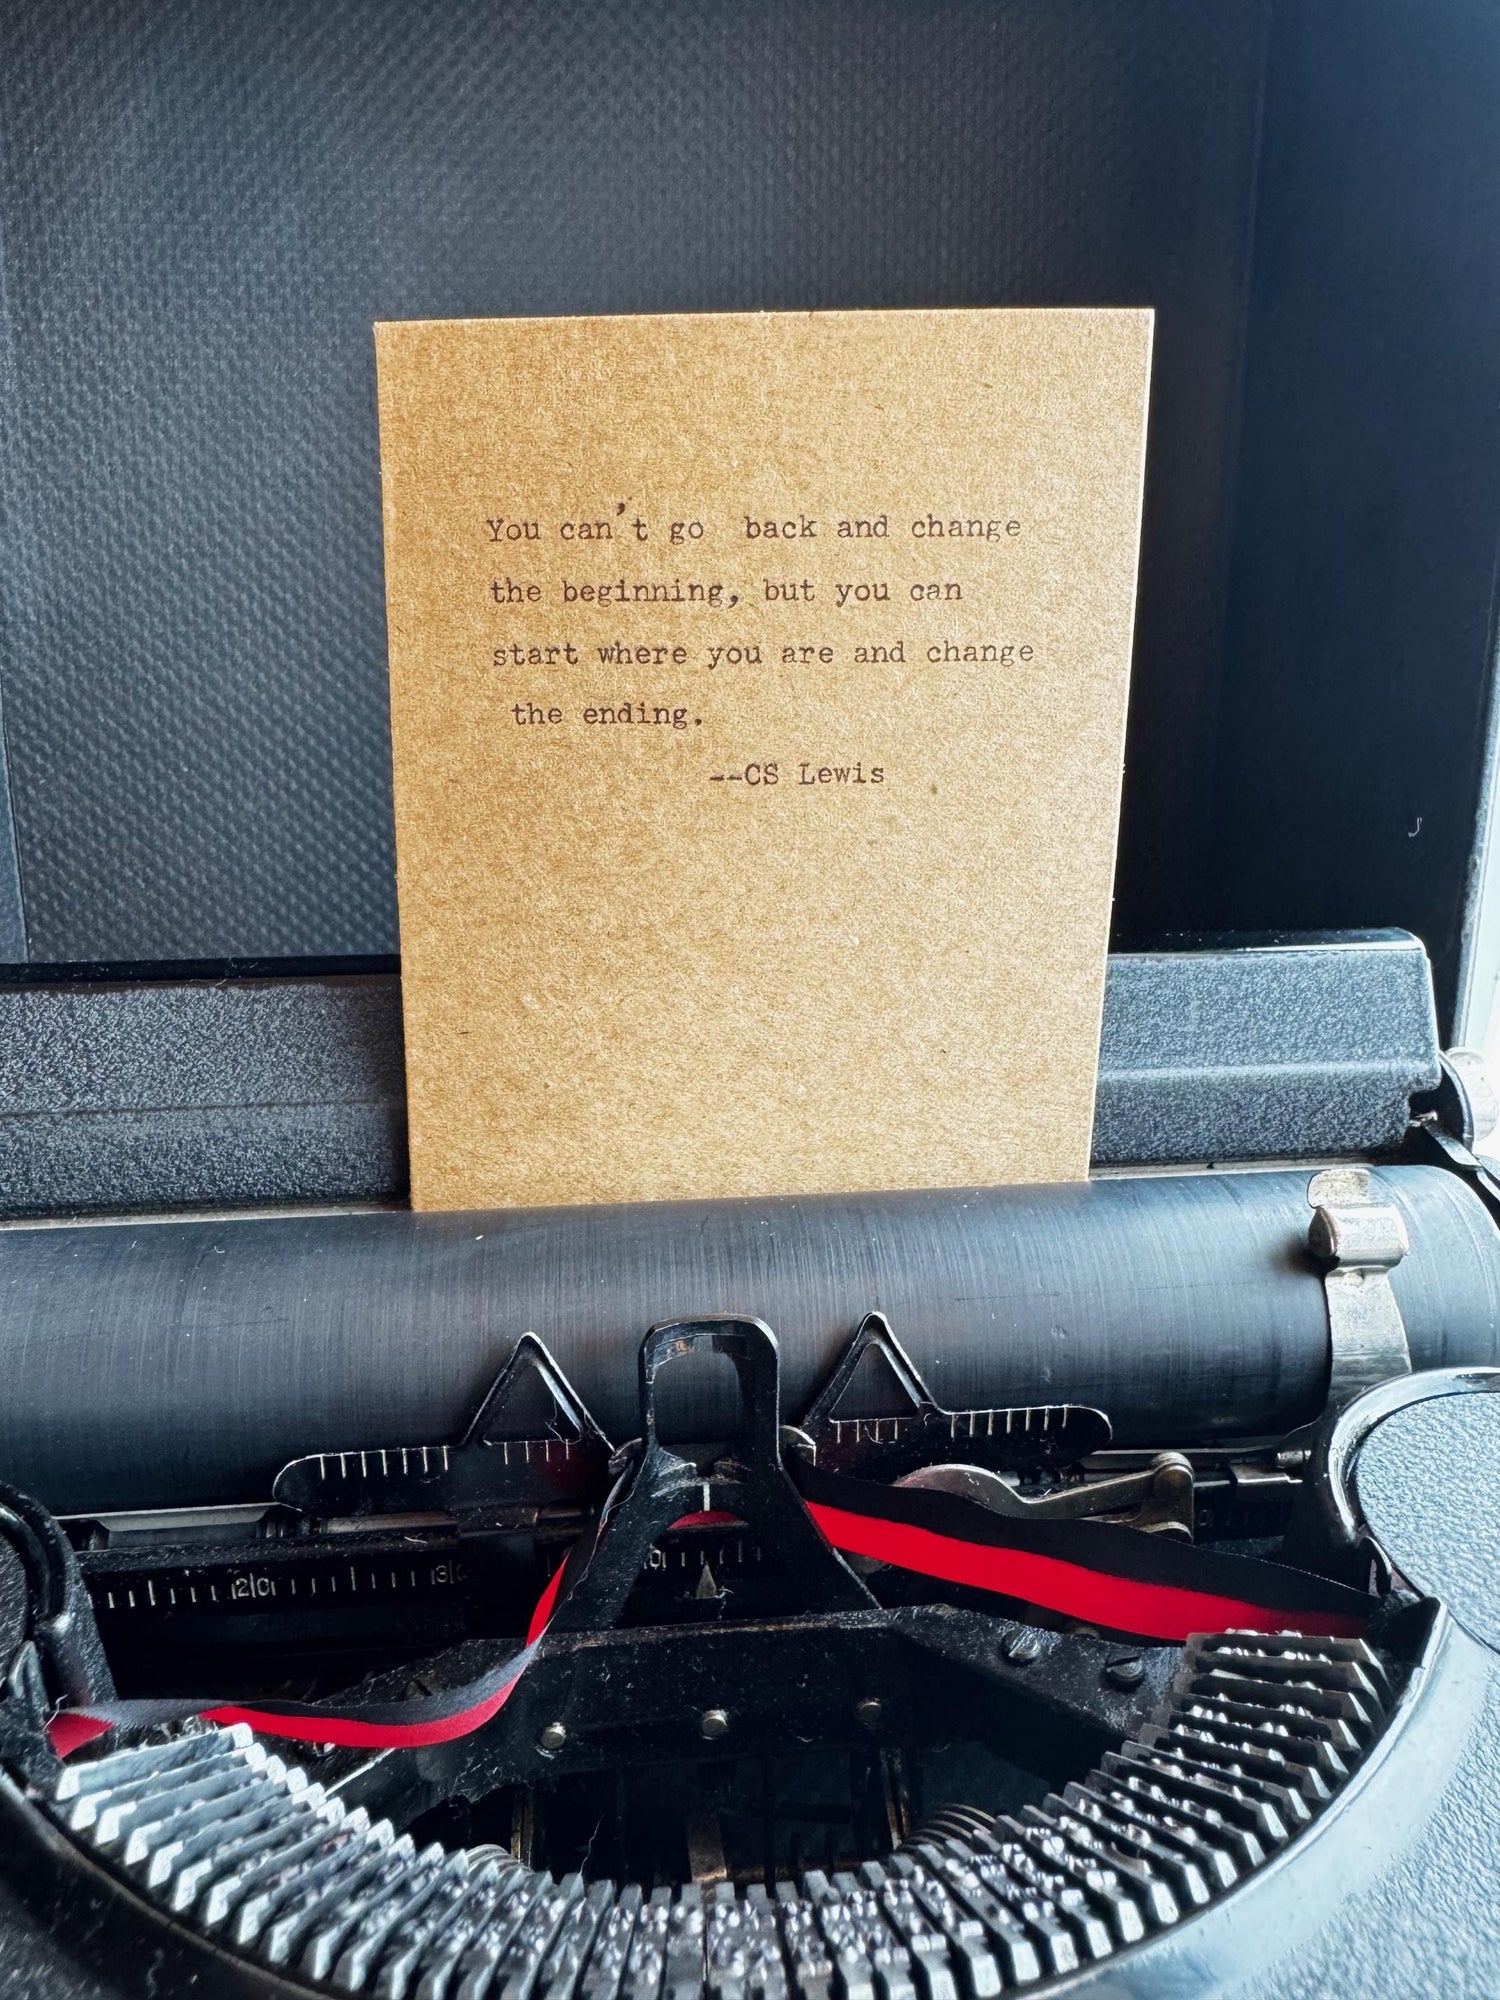 You can't go  back and change
the beginning, but you can
start where you are and change
the ending.
--CS Lewis